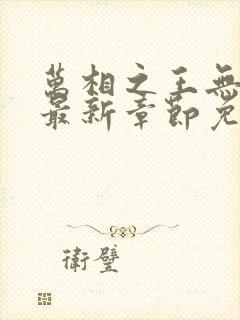 萬相之王無
最新章節免
衛璧